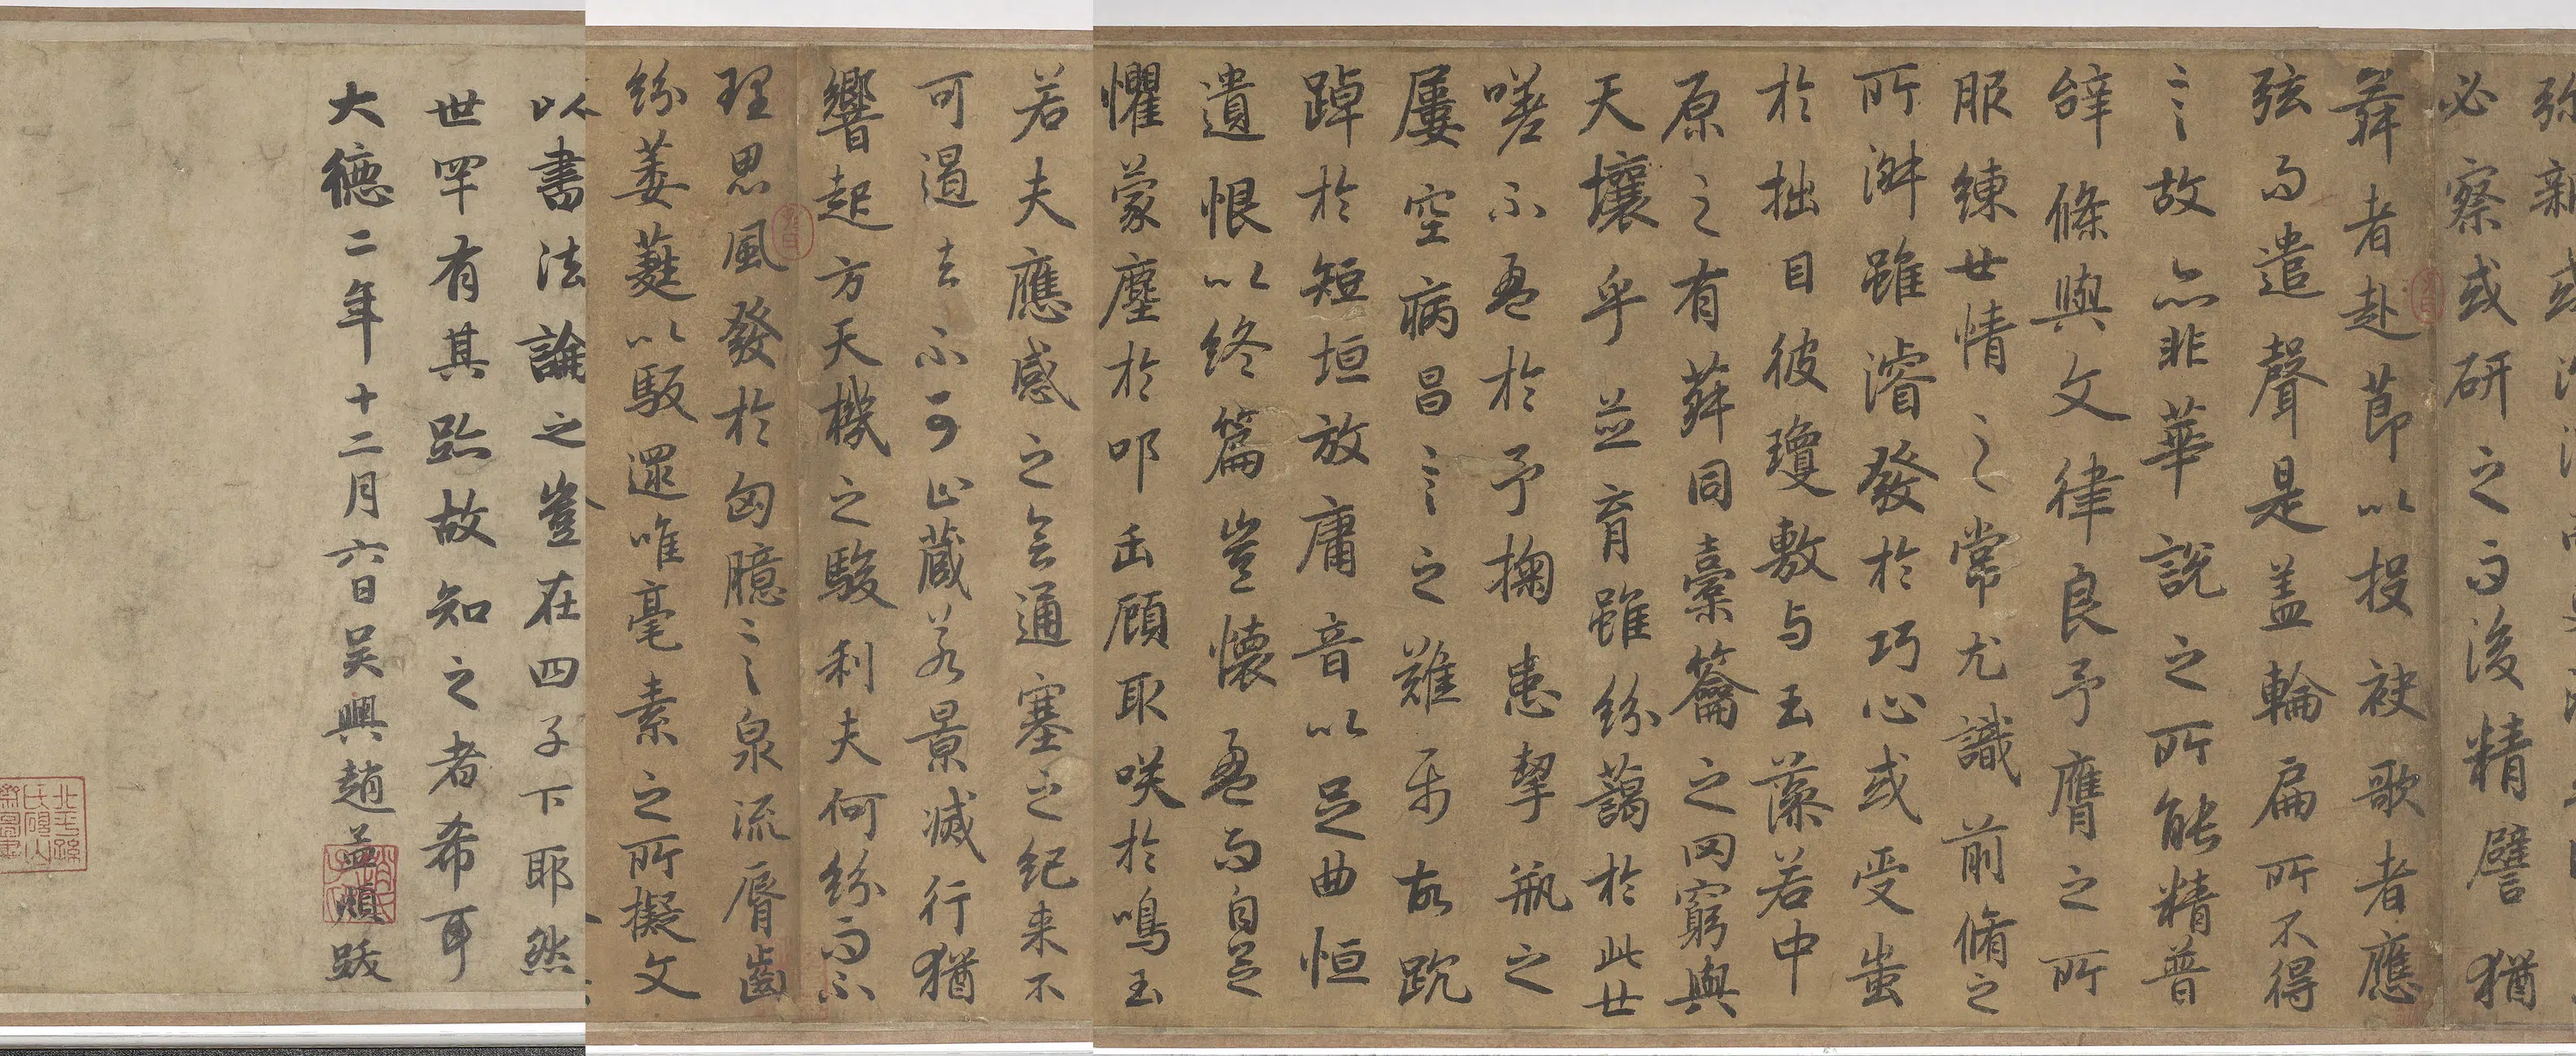 弥新或
必察或研之而後精譬猶
舞者赴莭以投袂歌者應
弦而遣聲是盖輪扁所不得
言故亦非華說之所能精普
辭條與文律良予膺之所
服練世情之常尤識前脩之
所淑雖濬發於巧心或受蚩
於拙目彼瓊敷与玉藻若中
原之有菽同橐籥之罔窮與
天壤乎並育雖紛藹於此世
嗟不盈於予掬患挈瓶之
屢空病昌言之難属故踸
踔於短垣放庸音以足曲恒
遺恨以終篇豈懷盈而自足
懼蒙塵於叩缶顧取咲於鳴玉
若夫應感之會通塞之紀来不
可遏去不可止藏若景滅行猶
響起方天機之駿利夫何紛而不
理思風發於匈臆言泉流脣齒
紛葳蕤以馺遝唯毫素之所擬文
以書法論之豈在四子下耶然
世罕有其跡故知之者希耳
大德二年十二月六日吴興趙孟頫跋